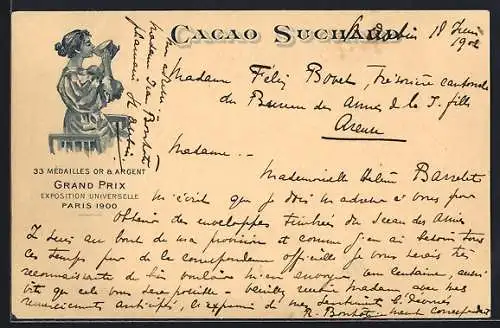 CACAO SUCHARD
St Aubin 18 Juin
1902
Madame Félix Bovet, Trésorière cantonale
du Bureau des Amies de la J. fille
Areuse
Madame. -
Mademoiselle Hélène Barrelet
m'écrit que je dois m'adresser à vous pour
obtenir des enveloppes timbrées du Sceau des Amies
Je suis au bout de ma provision et comme j'en ai besoin tous
ces temps pour de la correspondance officielle je vous serais très
reconnaissante de bien vouloir m'en envoyer une centaine, aussi
vite que cela vous sera possible - veuillez recevoir Madame avec mes
remerciements anticipés, l'expression de mes sentiments dévoués
Mon adresse -
Madame Jean Bonhôte
St Aubin
33 MÉDAILLES OR & ARGENT
GRAND PRIX
EXPOSITION UNIVERSELLE
PARIS 1900